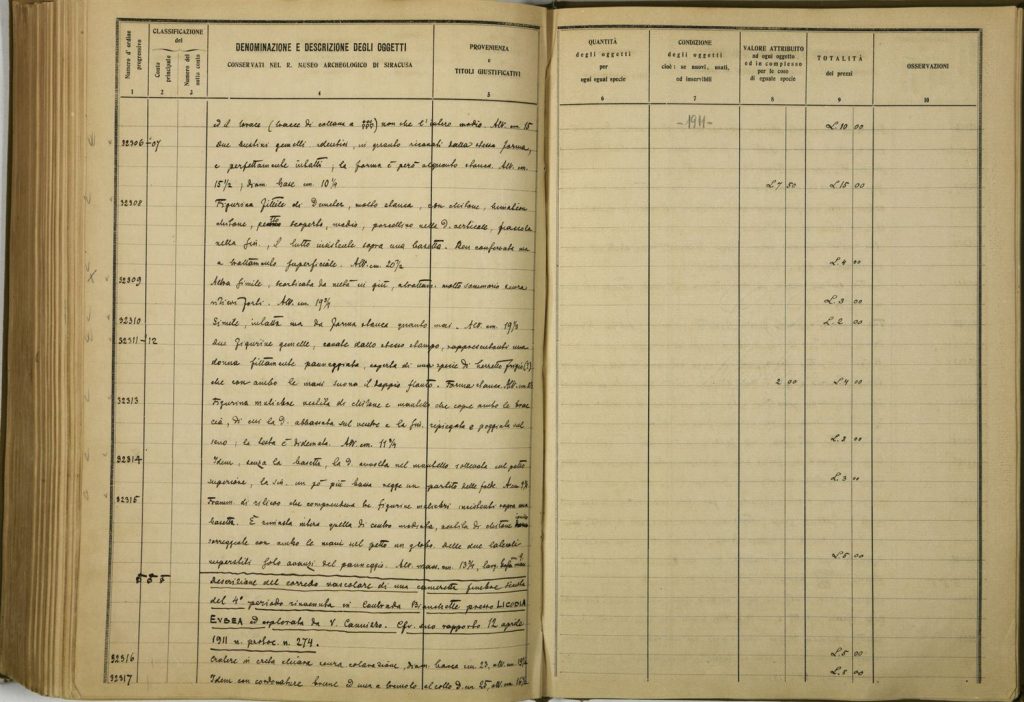 Numero d'ordine progressivo
CLASSIFICAZIONE
del
Conto principale
Numero del sotto conto
DENOMINAZIONE E DESCRIZIONE DEGLI OGGETTI
CONSERVATI NEL R. MUSEO ARCHEOLOGICO DI SIRACUSA
PROVENIENZA
e
TITOLI GIUSTIFICATIVI
1 2 3 4 5
non che l'intero modio. Alt. cm. 15
32306-07 due bustini gemelli identici, in quanto ricavati dalla stessa forma,
e perfettamente intatti; la forma è però alquanto stanca. Alt. cm.
15½; diam. base cm. 10¼
32308 Figurina fittile di Demeter, molto stanca, con chitone, himation
chitone, petto scoperto, modio, porcellino nella D. verticale, fiaccola
nella sin., il tutto insistente sopra una basetta. Ben conservata ma
a trattamento superficiale. Alt. cm. 20½
32309 Altra simile, scorticata da metà in giù, alquanto molto sommario senza
ritocchi forti. Alt. cm. 19¾
32310 Simile, intatta ma da forma stanca quanto mai. Alt. cm. 19½
32311-12 Due figurine gemelle, cavate dallo stesso stampo, rappresentanti una
donna fittamente panneggiata, coperta di una specie di berretto frigio(?)
che con ambo le mani suona il doppio flauto. Forma stanca. Alt. cm.
32313 Figurina muliebre vestita di chitone e mantello che copre ambo le brac
cia, di cui la D. abbassata sul ventre e la sin. ripiegata e poggiata sul
seno; la testa è diademata. Alt. cm. 11¾
32314 Idem, senza la basetta, la D. avvolta nel mantello sollevata sul petto
superiore, la sin. un pò più bassa regge un partito delle falde.
32315 Framm. di rilievo che comprendeva tre figurine muliebri insistenti sopra una
basetta. È rimasta intera quella di centro modiata, vestita di chitone
sorreggente con ambo le mani sul petto un globo. Delle due laterali
superstiti solo avanzi del panneggio. Alt. mass. cm. 13¾, larg.
555 Descrizione del corredo vascolare di una cameretta funebre sicula
del 4° periodo rinvenuta in Contrada Bianchette presso LICODIA
EUBEA D esplorata da V. Cannizzo. Cfr. suo rapporto 12 aprile
1911 n. protoc. n. 274.
32316 Cratere in creta chiara senza colorazione, diam. bocca cm. 23, alt. cm.
32317 Idem con cordonature brune D nere e tremolo al collo D. cm 25, alt. cm. 16½
QUANTITÀ
degli oggetti
per
ogni egual specie
CONDIZIONE
degli oggetti
cioè: se nuovi, usati,
od inservibili
VALORE ATTRIBUITO
ad ogni oggetto
od in complesso
per le cose
di eguale specie
TOTALITÀ
dei prezzi
OSSERVAZIONI
6 7 8 9 10
-1911- L. 10 00
L 7 50 L 15 00
L. 4 00
L. 3 00
L. 2 00
2 00 L. 4 00
L. 3 00
L. 3 00
L. 5 00
L. 5 00
L. 5 00